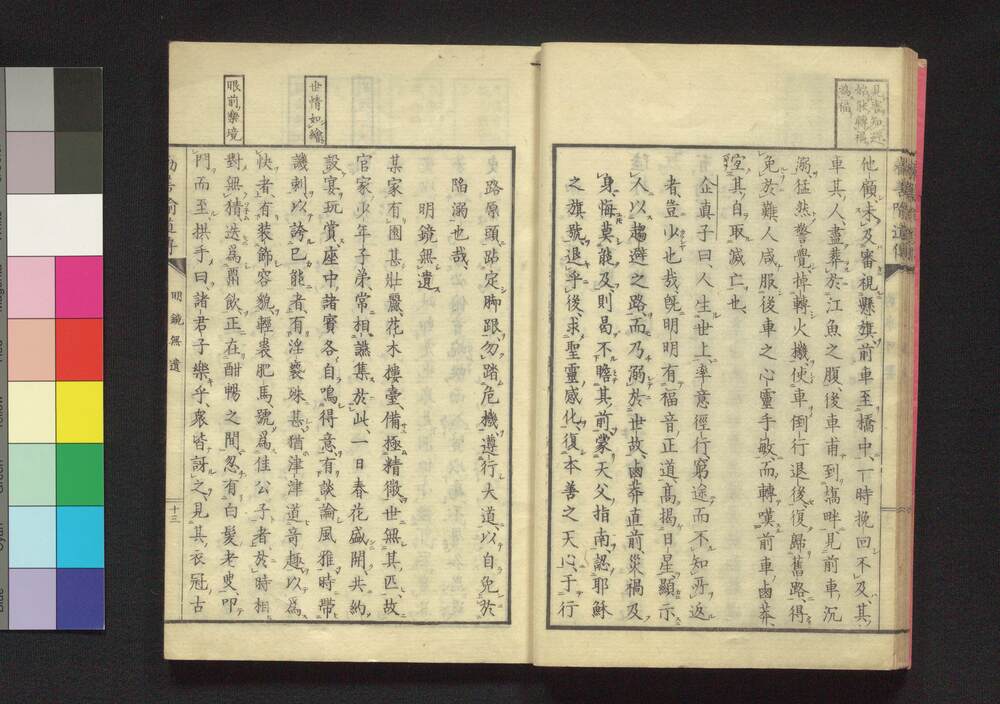 見害知避
始能轉禍
為福
他顧未及審視懸旗前車至橋中一時挽回不及其
車其人盡葬於江魚之腹後車甫到墕畔見前車沉
溺猛然警覺掉轉火機使車倒行退後復歸舊路得
免於難人咸服後車之心靈手敏而轉嘆前車鹵莽
宜其自取滅亡也
企真子曰人生世上率意徑行窮途而不知所返
者豈少也哉旣明明有福音正道高揭日星顯示
人以趨避之路而乃溺於世故鹵莽直前災禍及
身悔莫能及則曷不瞻其前蒙天父指南認耶穌
之旗號退乎後求聖靈感化復本善之天心于行
世情如繪
眼前樂境
路原頭跕定脚跟勿踏危機遵行大道以自免於
陷溺也哉
明鏡無遺
某家有園甚壯麗花木樓臺備極精緻世無其匹故
官家少年子弟常相讌集於此一日春花盛開共約
設宴玩賞座中諸賓各自鳴得意有談論風雅時帶
譏刺以誇己能者有淫褻殊甚猶津津道奇趣以為
快者有装飾容貌輕裘肥馬號為佳公子者於時相
對無猜迭為罰飲正在酣暢之間忽有白髮老叟叩
門而至拱手曰諸君子樂乎衆皆訝之見其衣冠古
明鏡無遺
十三